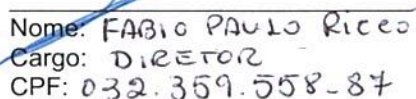 Nome: FABIO PAULO Ricco
Cargo: DiRETOR
CPF: 032.359.558-87